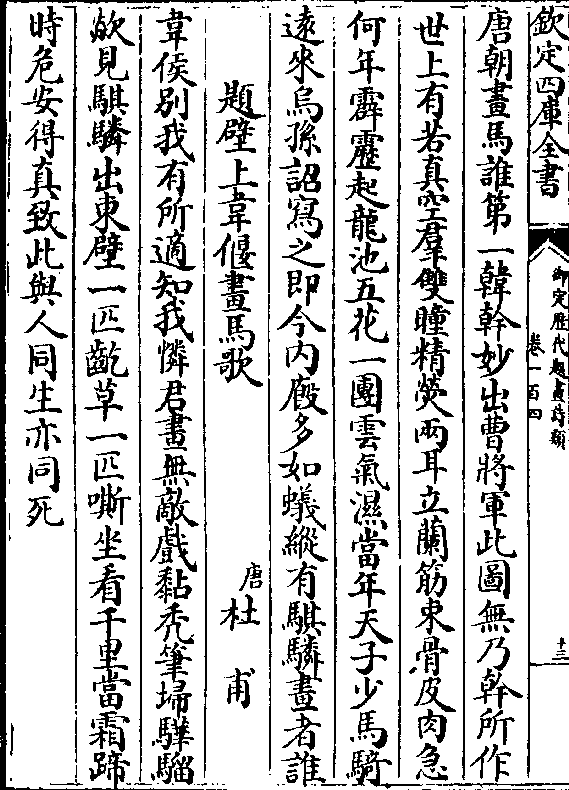 欽定四庫全書
御定歴代題畫詩類
卷一百四
十三
唐朝畫馬誰第一韓幹妙出曹將軍此圖無乃幹所作
世上有若真空羣雙瞳精熒兩耳立蘭筋束骨皮肉急
何年霹靂起龍池五花一團雲氣濕當年天子少馬騎
遠來烏孫詔寫之即今内廐多如蟻縱有騏驎畫者誰
題壁上韋偃畫馬歌
唐杜甫
韋侯别我有所適知我憐君畫無敵戲黏秃筆埽驊騮
欻見騏驎出東壁一匹齕草一匹嘶坐看千里當霜蹄
時危安得真致此與人同生亦同死